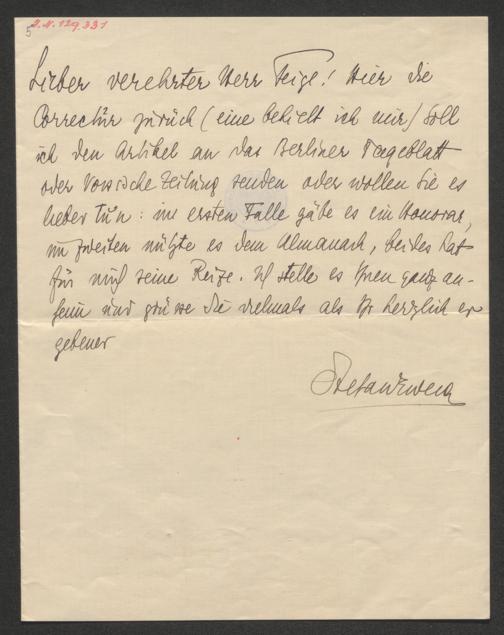 5
I.N. 129.331
Lieber verehrter Herr Feige! Hier die
Correctur zurück (eine behielt ich mir) Soll
ich den Artikel an das Berliner Tageblatt
oder Vossische Zeitung senden oder wollen Sie es
lieber tun: im ersten Falle gäbe es ein Honorar,
im zweiten nützte es dem Almanach, beides hat
für mich seine Reize. Ich stelle es Ihnen ganz an-
heim und grüsse Sie vielmals als Ihr herzlich er-
gebener
Stefan Zweig